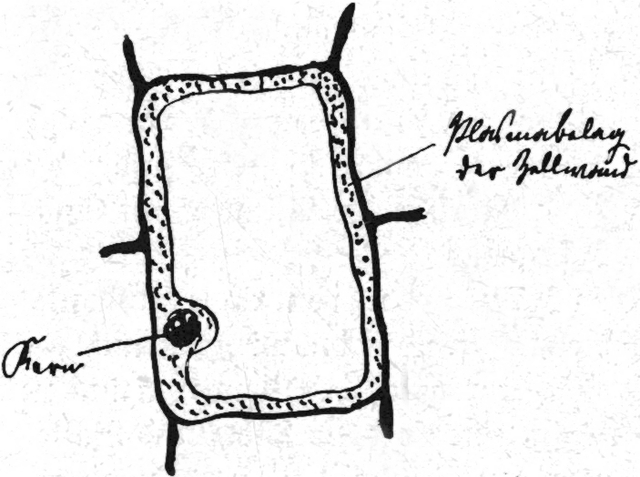 Plasmabelag
der Zellwand
Kern